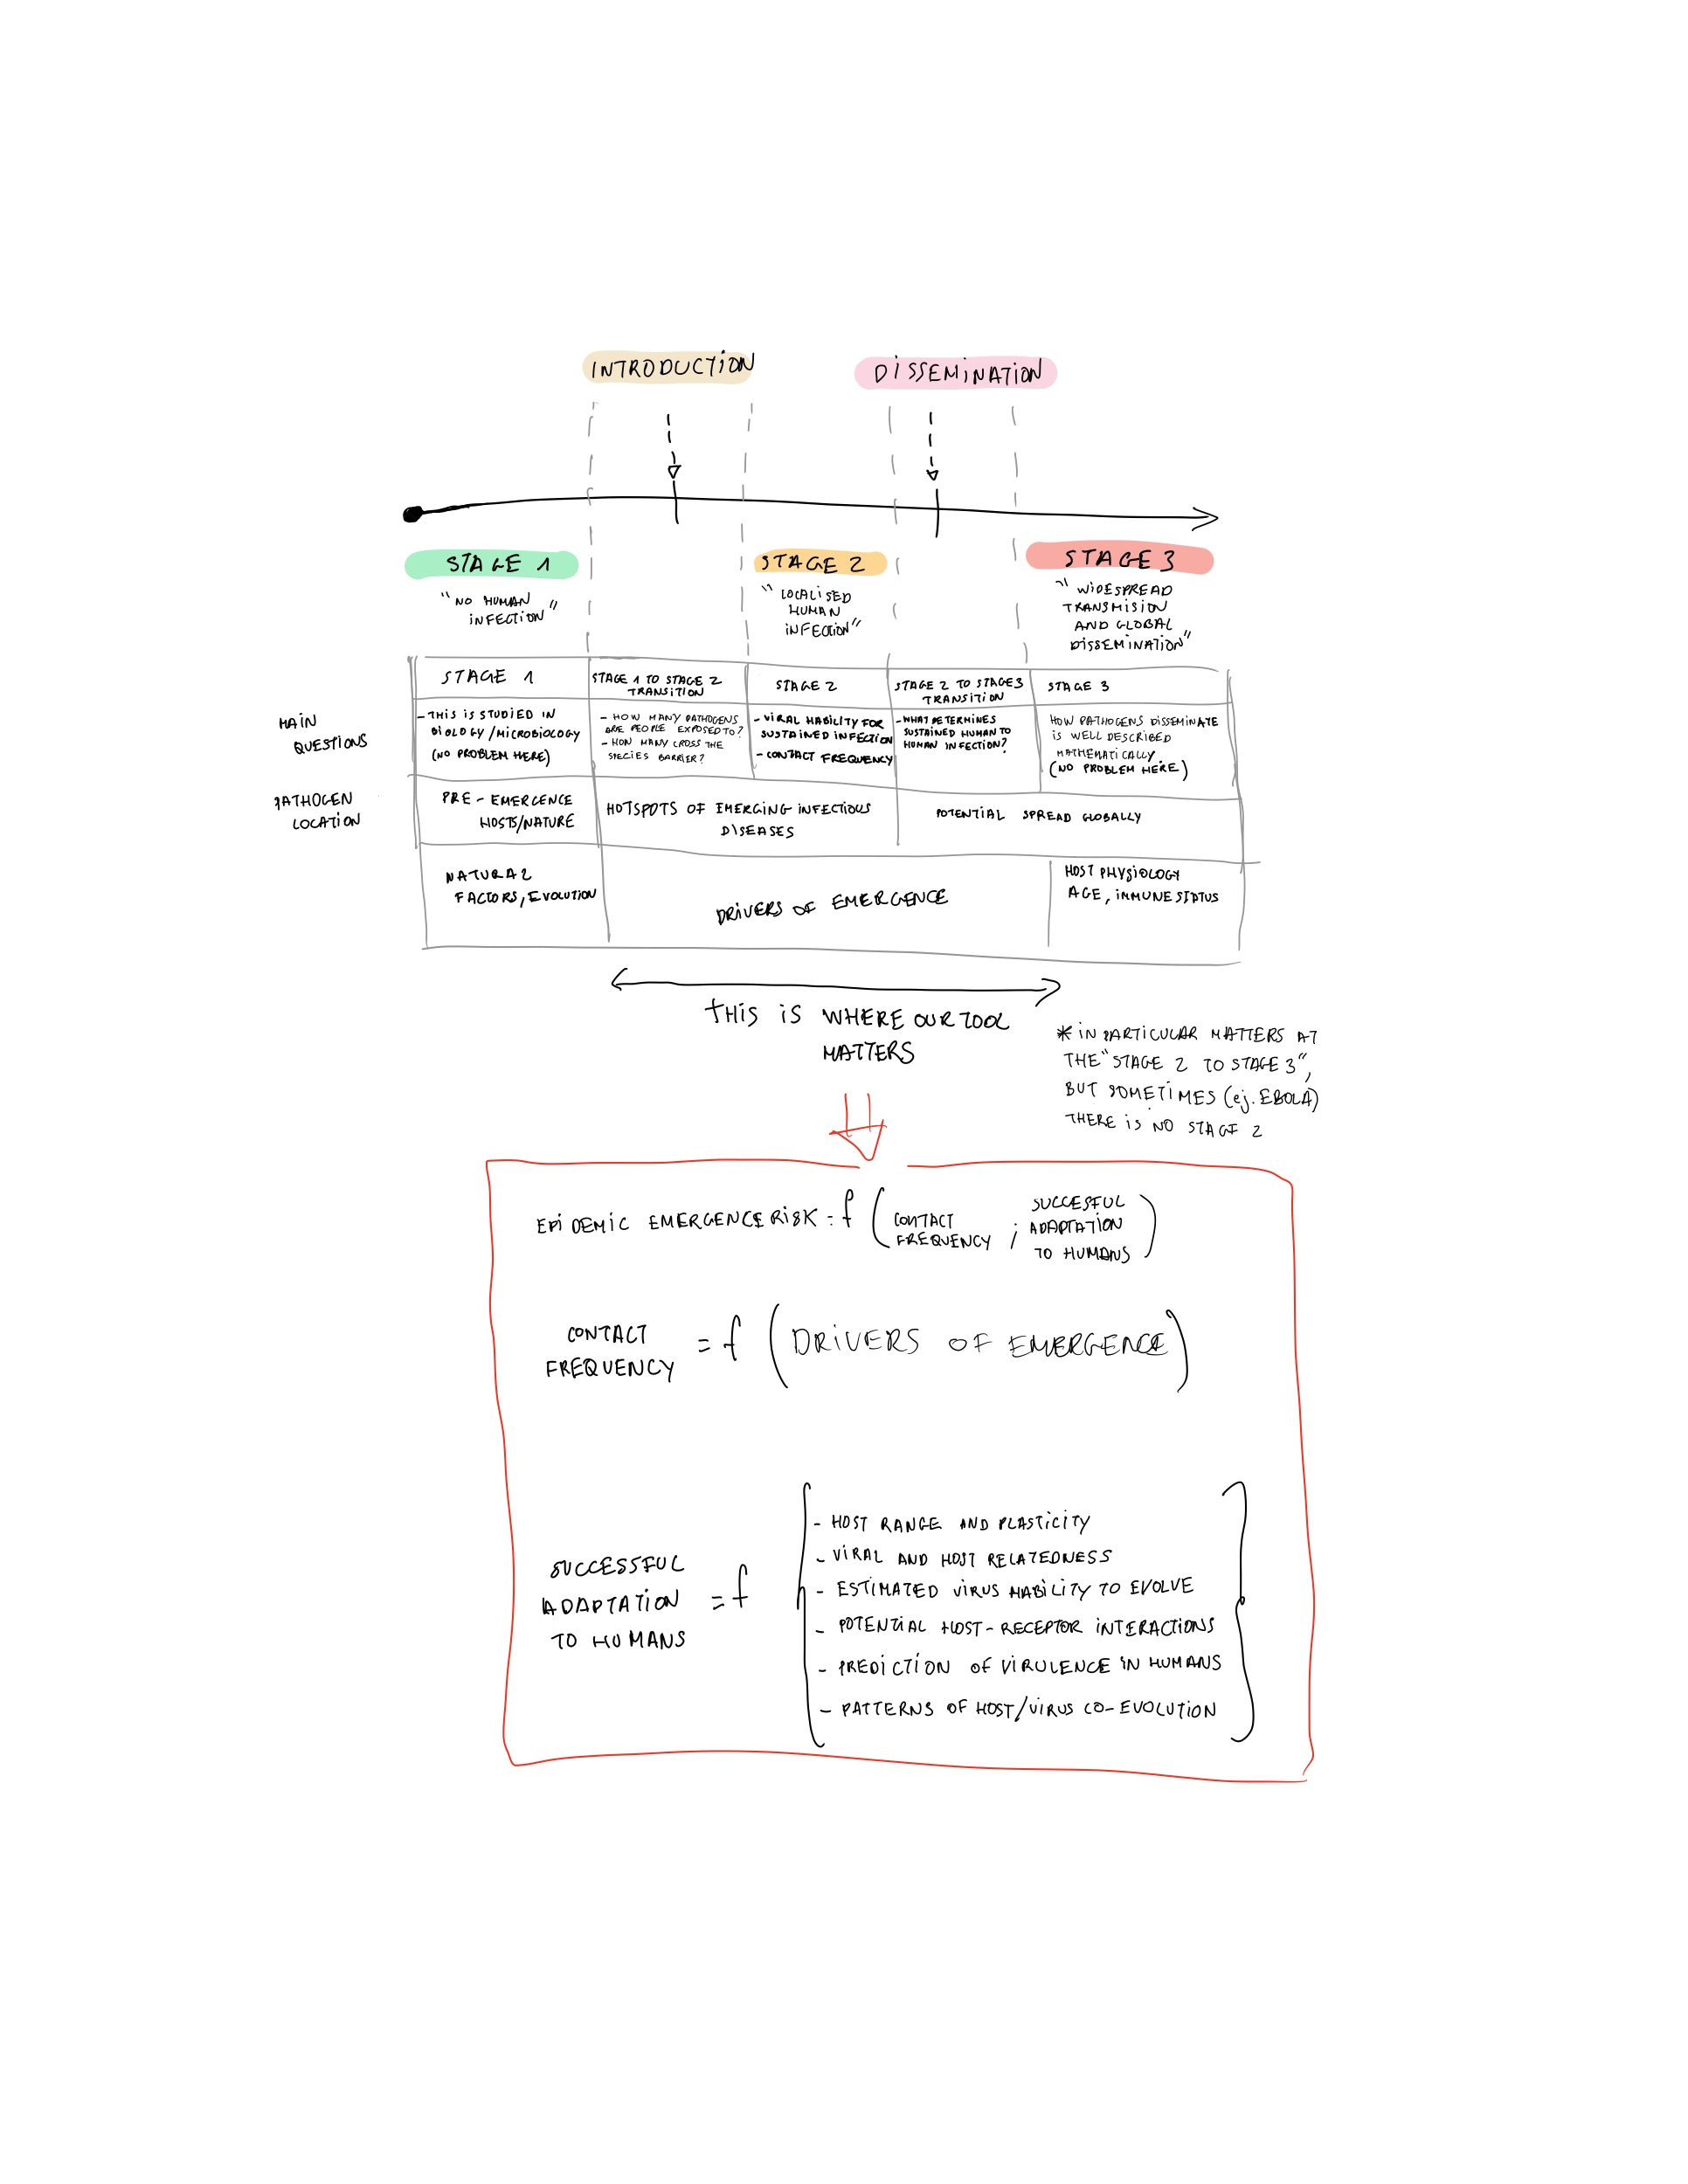 INTRODUCTION
DISSEMINATION
STAGE 1
STAGE 2
STAGE 3
"NO HUMAN
INFECTION"
"LOCALISED
HUMAN
INFECTION"
"WIDESPREAD
TRANSMISION
AND GLOBAL
DISSEMINATION"
STAGE 1
STAGE 1 TO STAGE 2
TRANSITION
STAGE 2
STAGE 2 TO STAGE 3
TRANSITION
STAGE 3
MAIN
QUESTIONS
- THIS IS STUDIED IN
BIOLOGY/MICROBIOLOGY
(NO PROBLEM HERE)
- HOW MANY PATHOGENS
ARE PEOPLE EXPOSED TO?
- HOW MANY CROSS THE
SPECIES BARRIER?
- VIRAL HABILITY FOR
SUSTAINED INFECTION
- CONTACT FREQUENCY
- WHAT DETERMINES
SUSTAINED HUMAN TO
HUMAN INFECTION?
HOW PATHOGENS DISSEMINATE
IS WELL DESCRIBED
MATHEMATICALLY
(NO PROBLEM HERE)
PATHOGEN
LOCATION
PRE-EMERGENCE
HOSTS/NATURE
HOTSPOTS OF EMERGING INFECTIOUS
DISEASES
POTENTIAL SPREAD GLOBALLY
NATURAL
FACTORS, EVOLUTION
DRIVERS OF EMERGENCE
HOST PHYSIOLOGY
AGE, IMMUNE STATUS
THIS IS WHERE OUR TOOL
MATTERS
* IN PARTICULAR MATTERS AT
THE "STAGE 2 TO STAGE 3",
BUT SOMETIMES (ej. EBOLA)
THERE IS NO STAGE 2
EPIDEMIC EMERGENCE RISK = f (CONTACT FREQUENCY ; SUCCESFUL ADAPTATION TO HUMANS)
CONTACT
FREQUENCY = f (DRIVERS OF EMERGENCE)
SUCCESSFUL
ADAPTATION = f
TO HUMANS
- HOST RANGE AND PLASTICITY
- VIRAL AND HOST RELATEDNESS
- ESTIMATED VIRUS HABILITY TO EVOLVE
- POTENTIAL HOST-RECEPTOR INTERACTIONS
- PREDICTION OF VIRULENCE IN HUMANS
- PATTERNS OF HOST/VIRUS CO-EVOLUTION